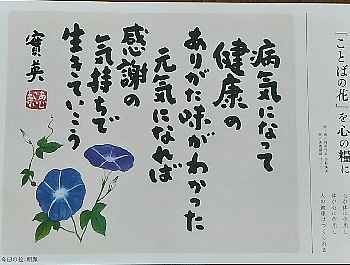 『ことばの花』を心の糧に
病気になって
健康の
ありがた味がわかった
元気になれば
感謝の
気持ちで
生きていこう
實英
今日の絵・朝顔